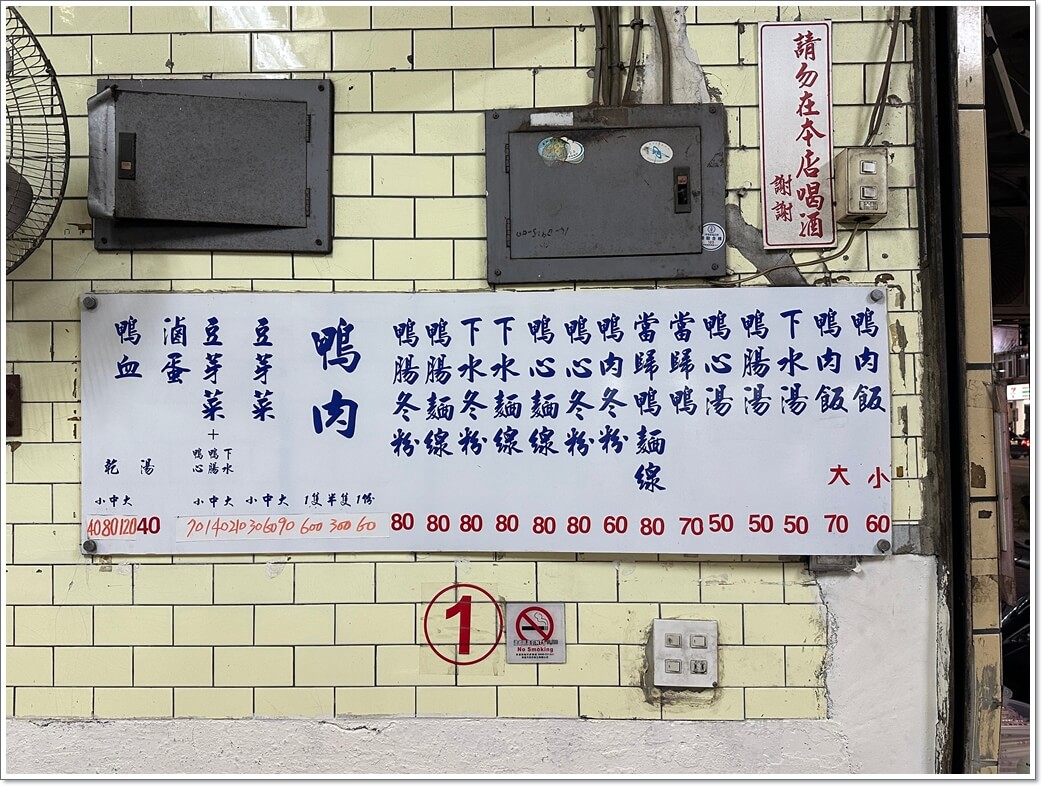 請勿在本店喝酒
謝謝
鴨肉飯 小 60
鴨肉飯 大 70
下水湯 50
鴨腸湯 50
鴨心湯 50
當歸鴨 70
當歸鴨麵線 80
鴨肉冬粉 60
鴨心冬粉 80
鴨心麵線 80
下水麵線 80
下水冬粉 80
鴨腸麵線 80
鴨腸冬粉 80
鴨肉
1隻 半隻 1份
600 300 60
豆芽菜
小中大
30 60 90
豆芽菜+
鴨心 鴨腸 下水
小中大
70 140 210
滷蛋
鴨血
乾 湯
小中大
40 80 120 40
1
No Smoking